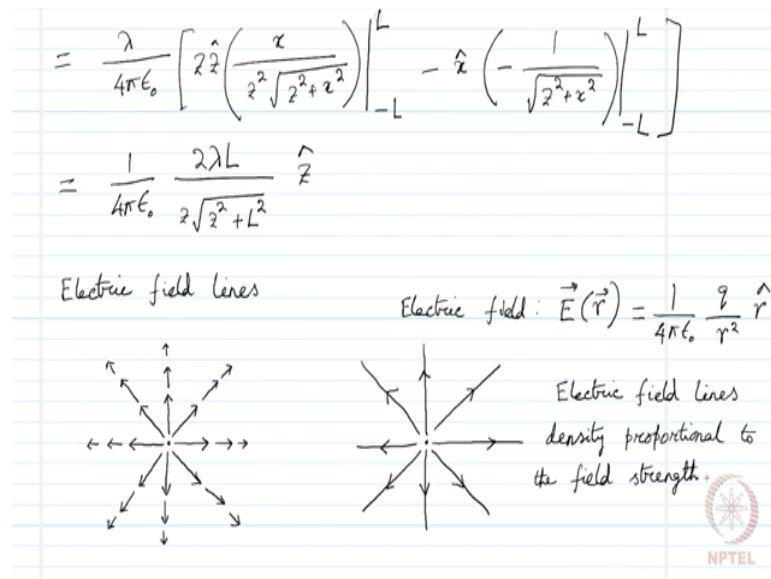 = λ/4πε₀ [ z ẑ ( x / z²√(z²+x²) ) |_{-L}^{L} - x̂ ( - 1 / √(z²+x²) ) |_{-L}^{L} ]
= 1/4πε₀ 2λL / z√(z²+L²) ẑ
Electric field lines
Electric field : E⃗(r⃗) = 1/4πε₀ q/r² r̂
Electric field lines
density proportional to
the field strength.
NPTEL